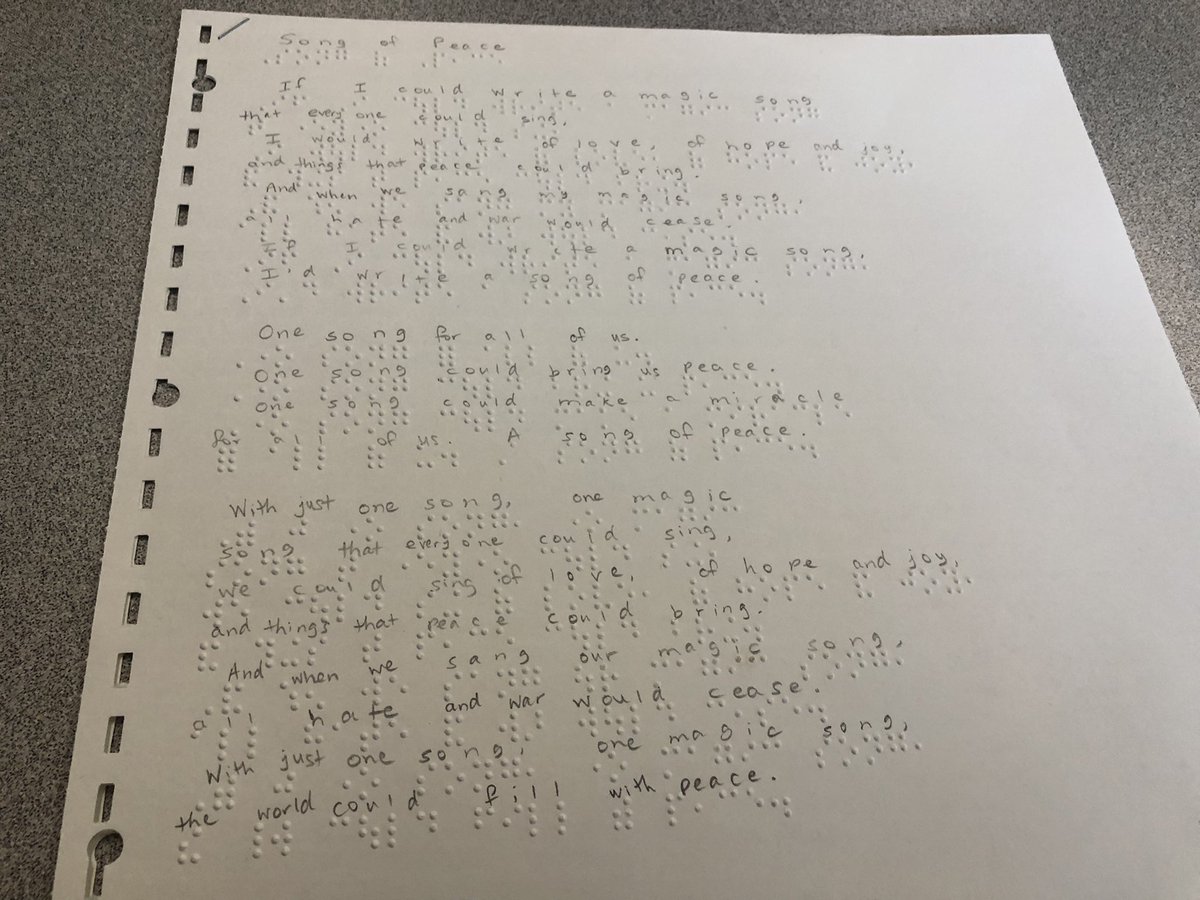 Song of Peace
If I could write a magic song
that every one could sing,
I would write of love, of hope and joy,
and things that peace could bring.
And when we sang my magic song,
all hate and war would cease.
If I could write a magic song,
I'd write a song of peace.
One song for all of us.
One song could bring us peace.
One song could make a miracle
for all of us. A song of peace.
With just one song, one magic
song that every one could sing,
we could sing of love, of hope and joy,
and things that peace could bring.
And when we sang our magic song,
all hate and war would cease.
With just one song, one magic song,
the world could fill with peace.